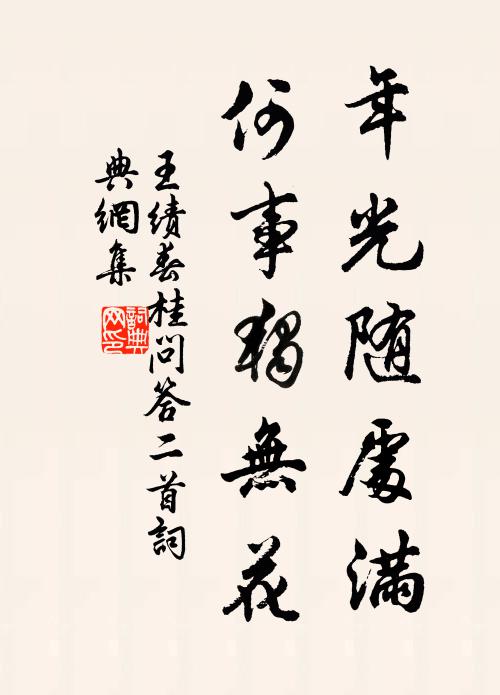 年光随處滿
何事獨無花
王績春桂問答二首詞
典網集
詞典
网印